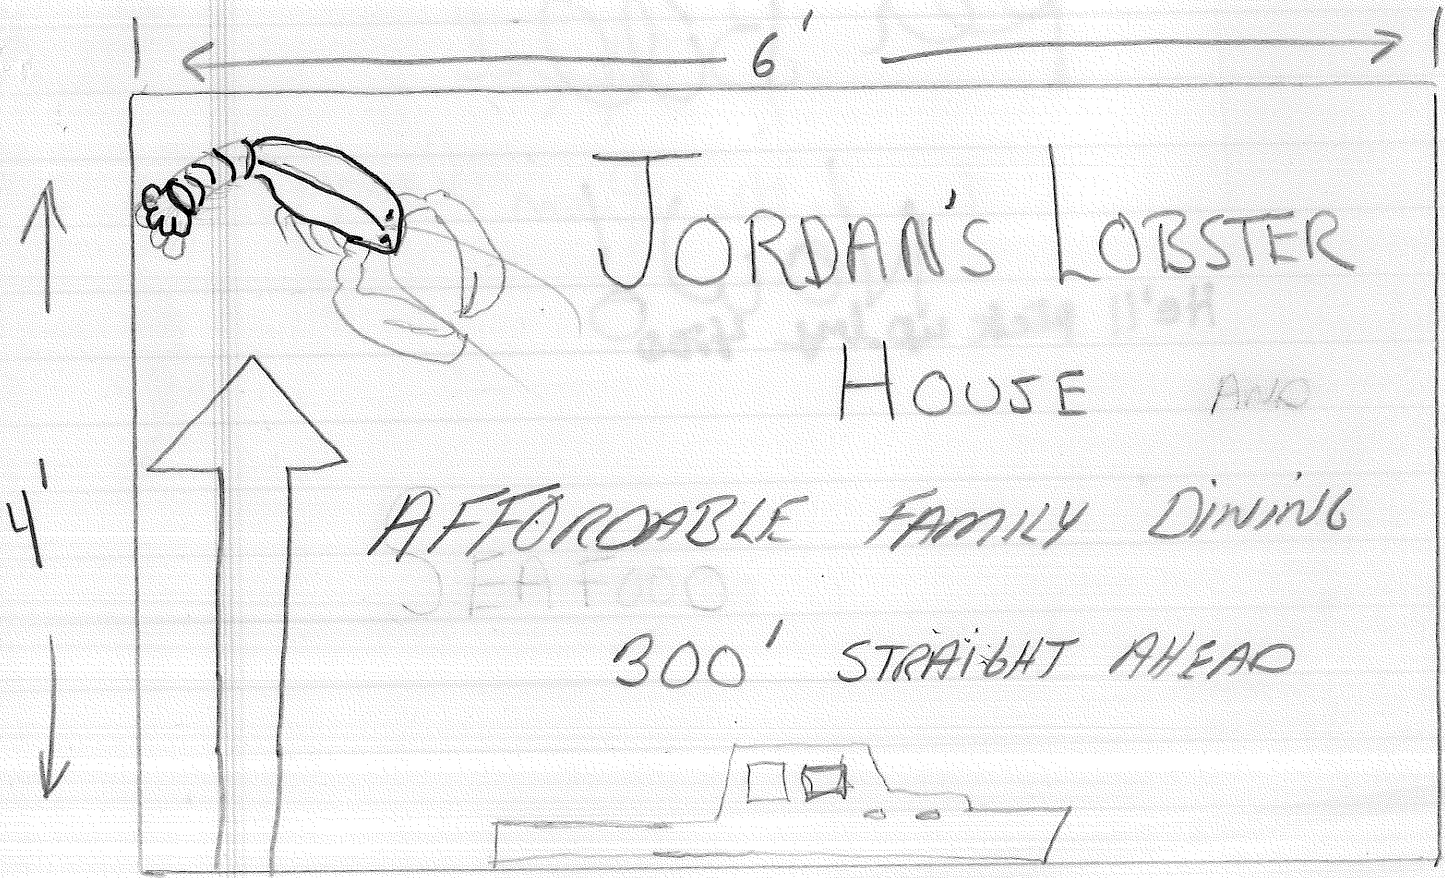 6'
JORDAN'S LOBSTER
HOUSE AND
4'
AFFORDABLE FAMILY DINING
SEAFOOD
300' STRAIGHT AHEAD